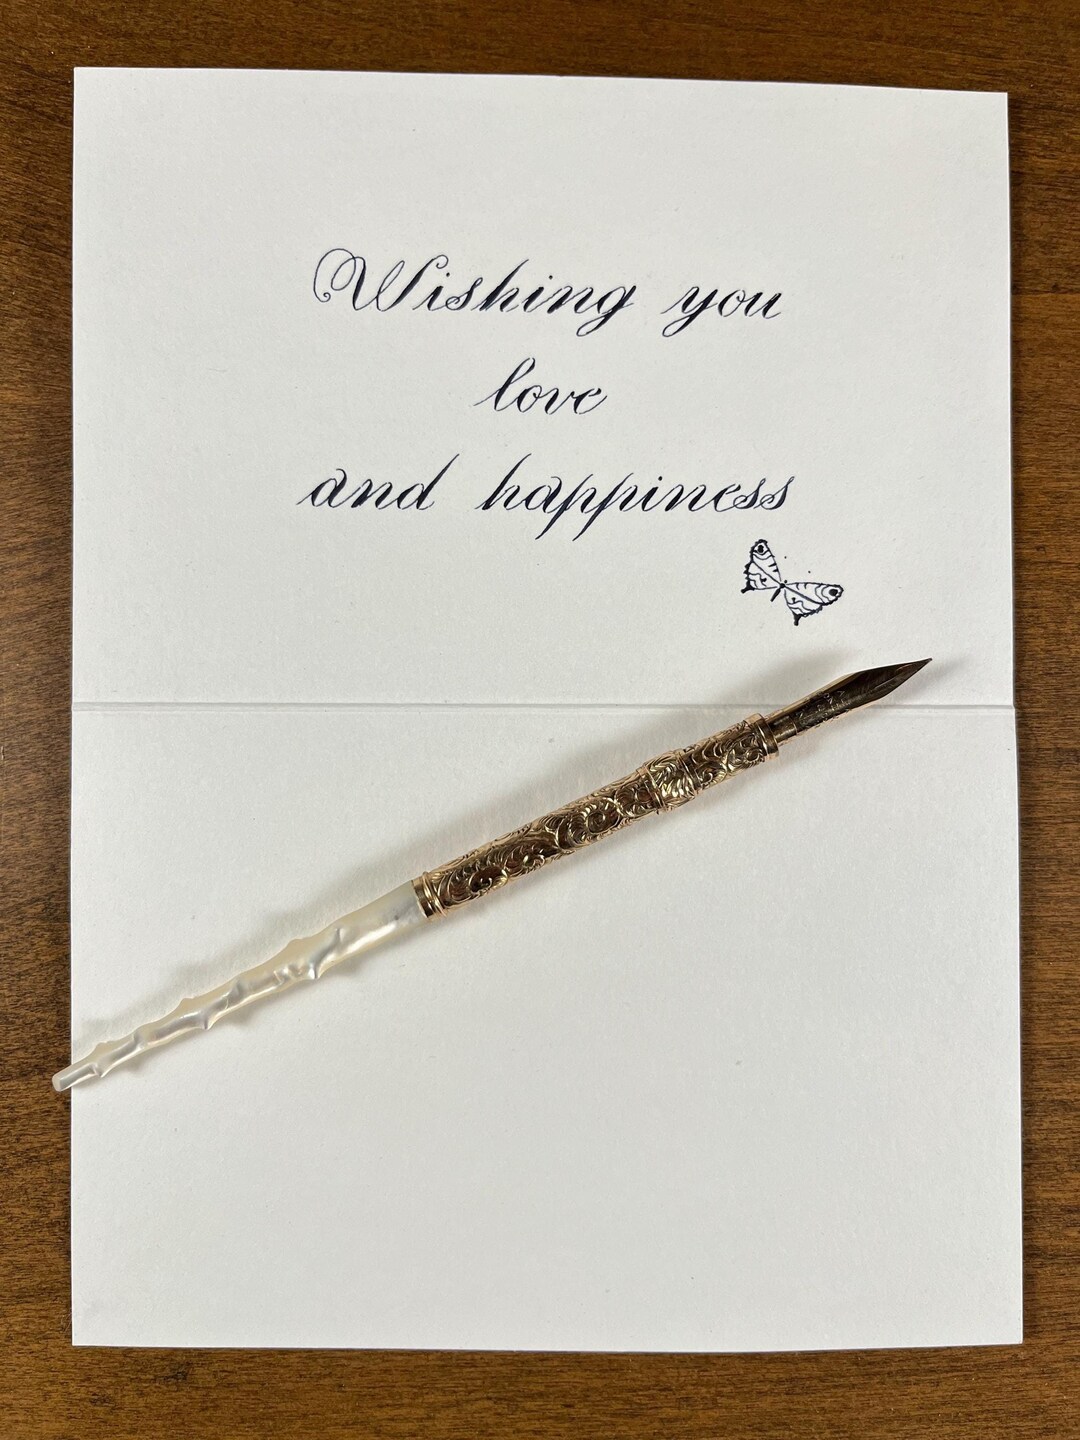 Wishing you
love
and happiness